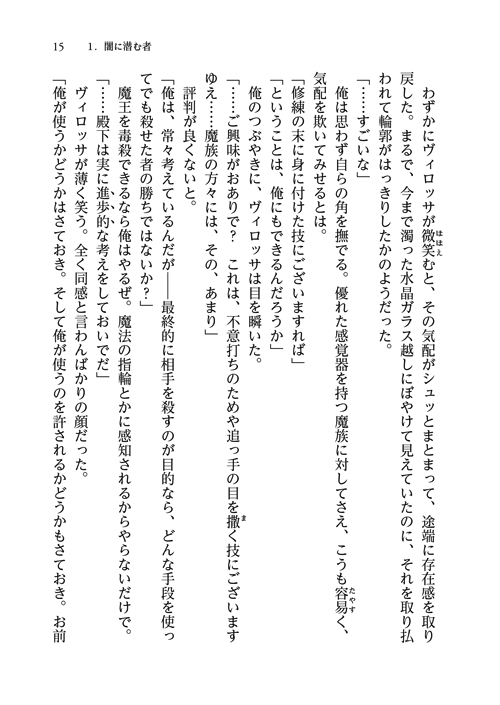 15　1．闇に潜む者
わずかにヴィロッサが微笑むと、その気配がシュッとまとまって、途端に存在感を取り
戻した。まるで、今まで濁った水晶ガラス越しにぼやけて見えていたのに、それを取り払
われて輪郭がはっきりしたかのようだった。
「……すごいな」
俺は思わず自らの角を撫でる。優れた感覚器を持つ魔族に対してさえ、こうも容易く、
気配を欺いてみせるとは。
「修練の末に身に付けた技にございますれば」
「ということは、俺にもできるんだろうか」
俺のつぶやきに、ヴィロッサは目を瞬いた。
「……ご興味がおありで？　これは、不意打ちのためや追っ手の目を撒く技にございます
ゆえ……魔族の方々には、その、あまり」
評判が良くないと。
「俺は、常々考えているんだが――最終的に相手を殺すのが目的なら、どんな手段を使っ
てでも殺せた者の勝ちではないか？」
魔王を毒殺できるなら俺はやるぜ。魔法の指輪とかに感知されるからやらないだけで。
「……殿下は実に進歩的な考えをしておいでだ」
ヴィロッサが薄く笑う。全く同感と言わんばかりの顔だった。
「俺が使うかどうかはさておき。そして俺が使うのを許されるかどうかもさておき。お前